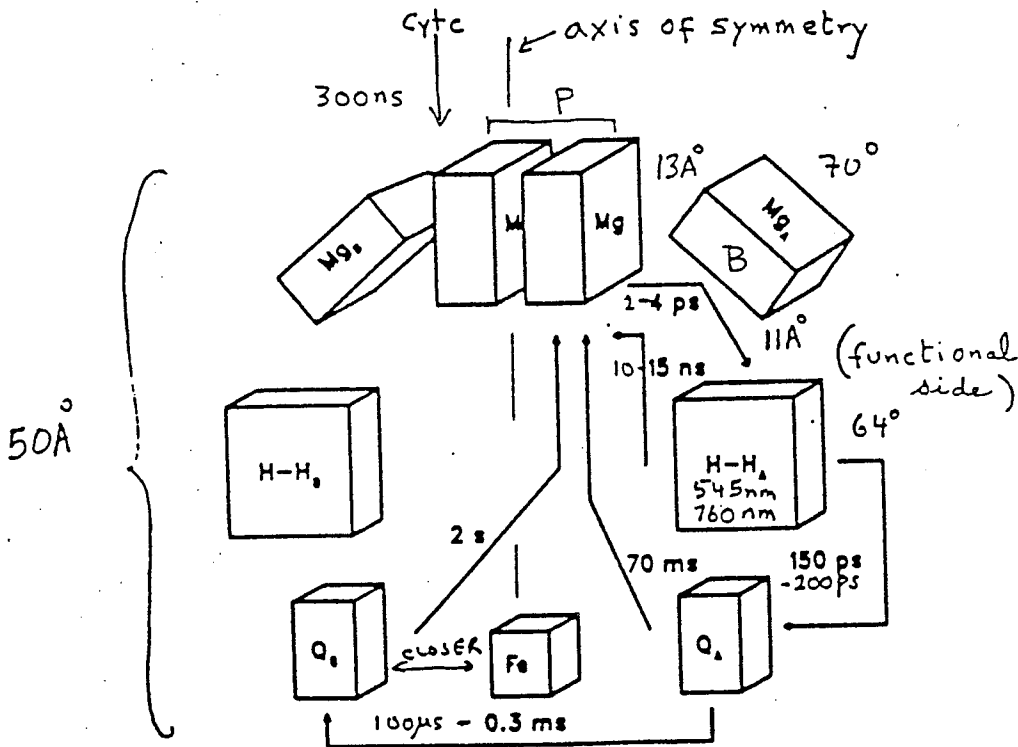 cytc
axis of symmetry
300ns
P
13A°
70°
Mg
Mg
Mg_B
Mg_A
B
2-4 ps
11A°
(functional side)
10-15 ns
50A°
64°
H-H_B
H-H_A
545nm
760nm
2 s
70 ms
150 ps
-200ps
Q_B
CLOSER
Fe
Q_A
100µs - 0.3 ms